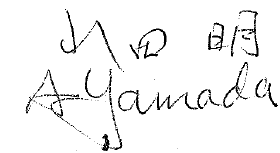 山田 明
A Yamada